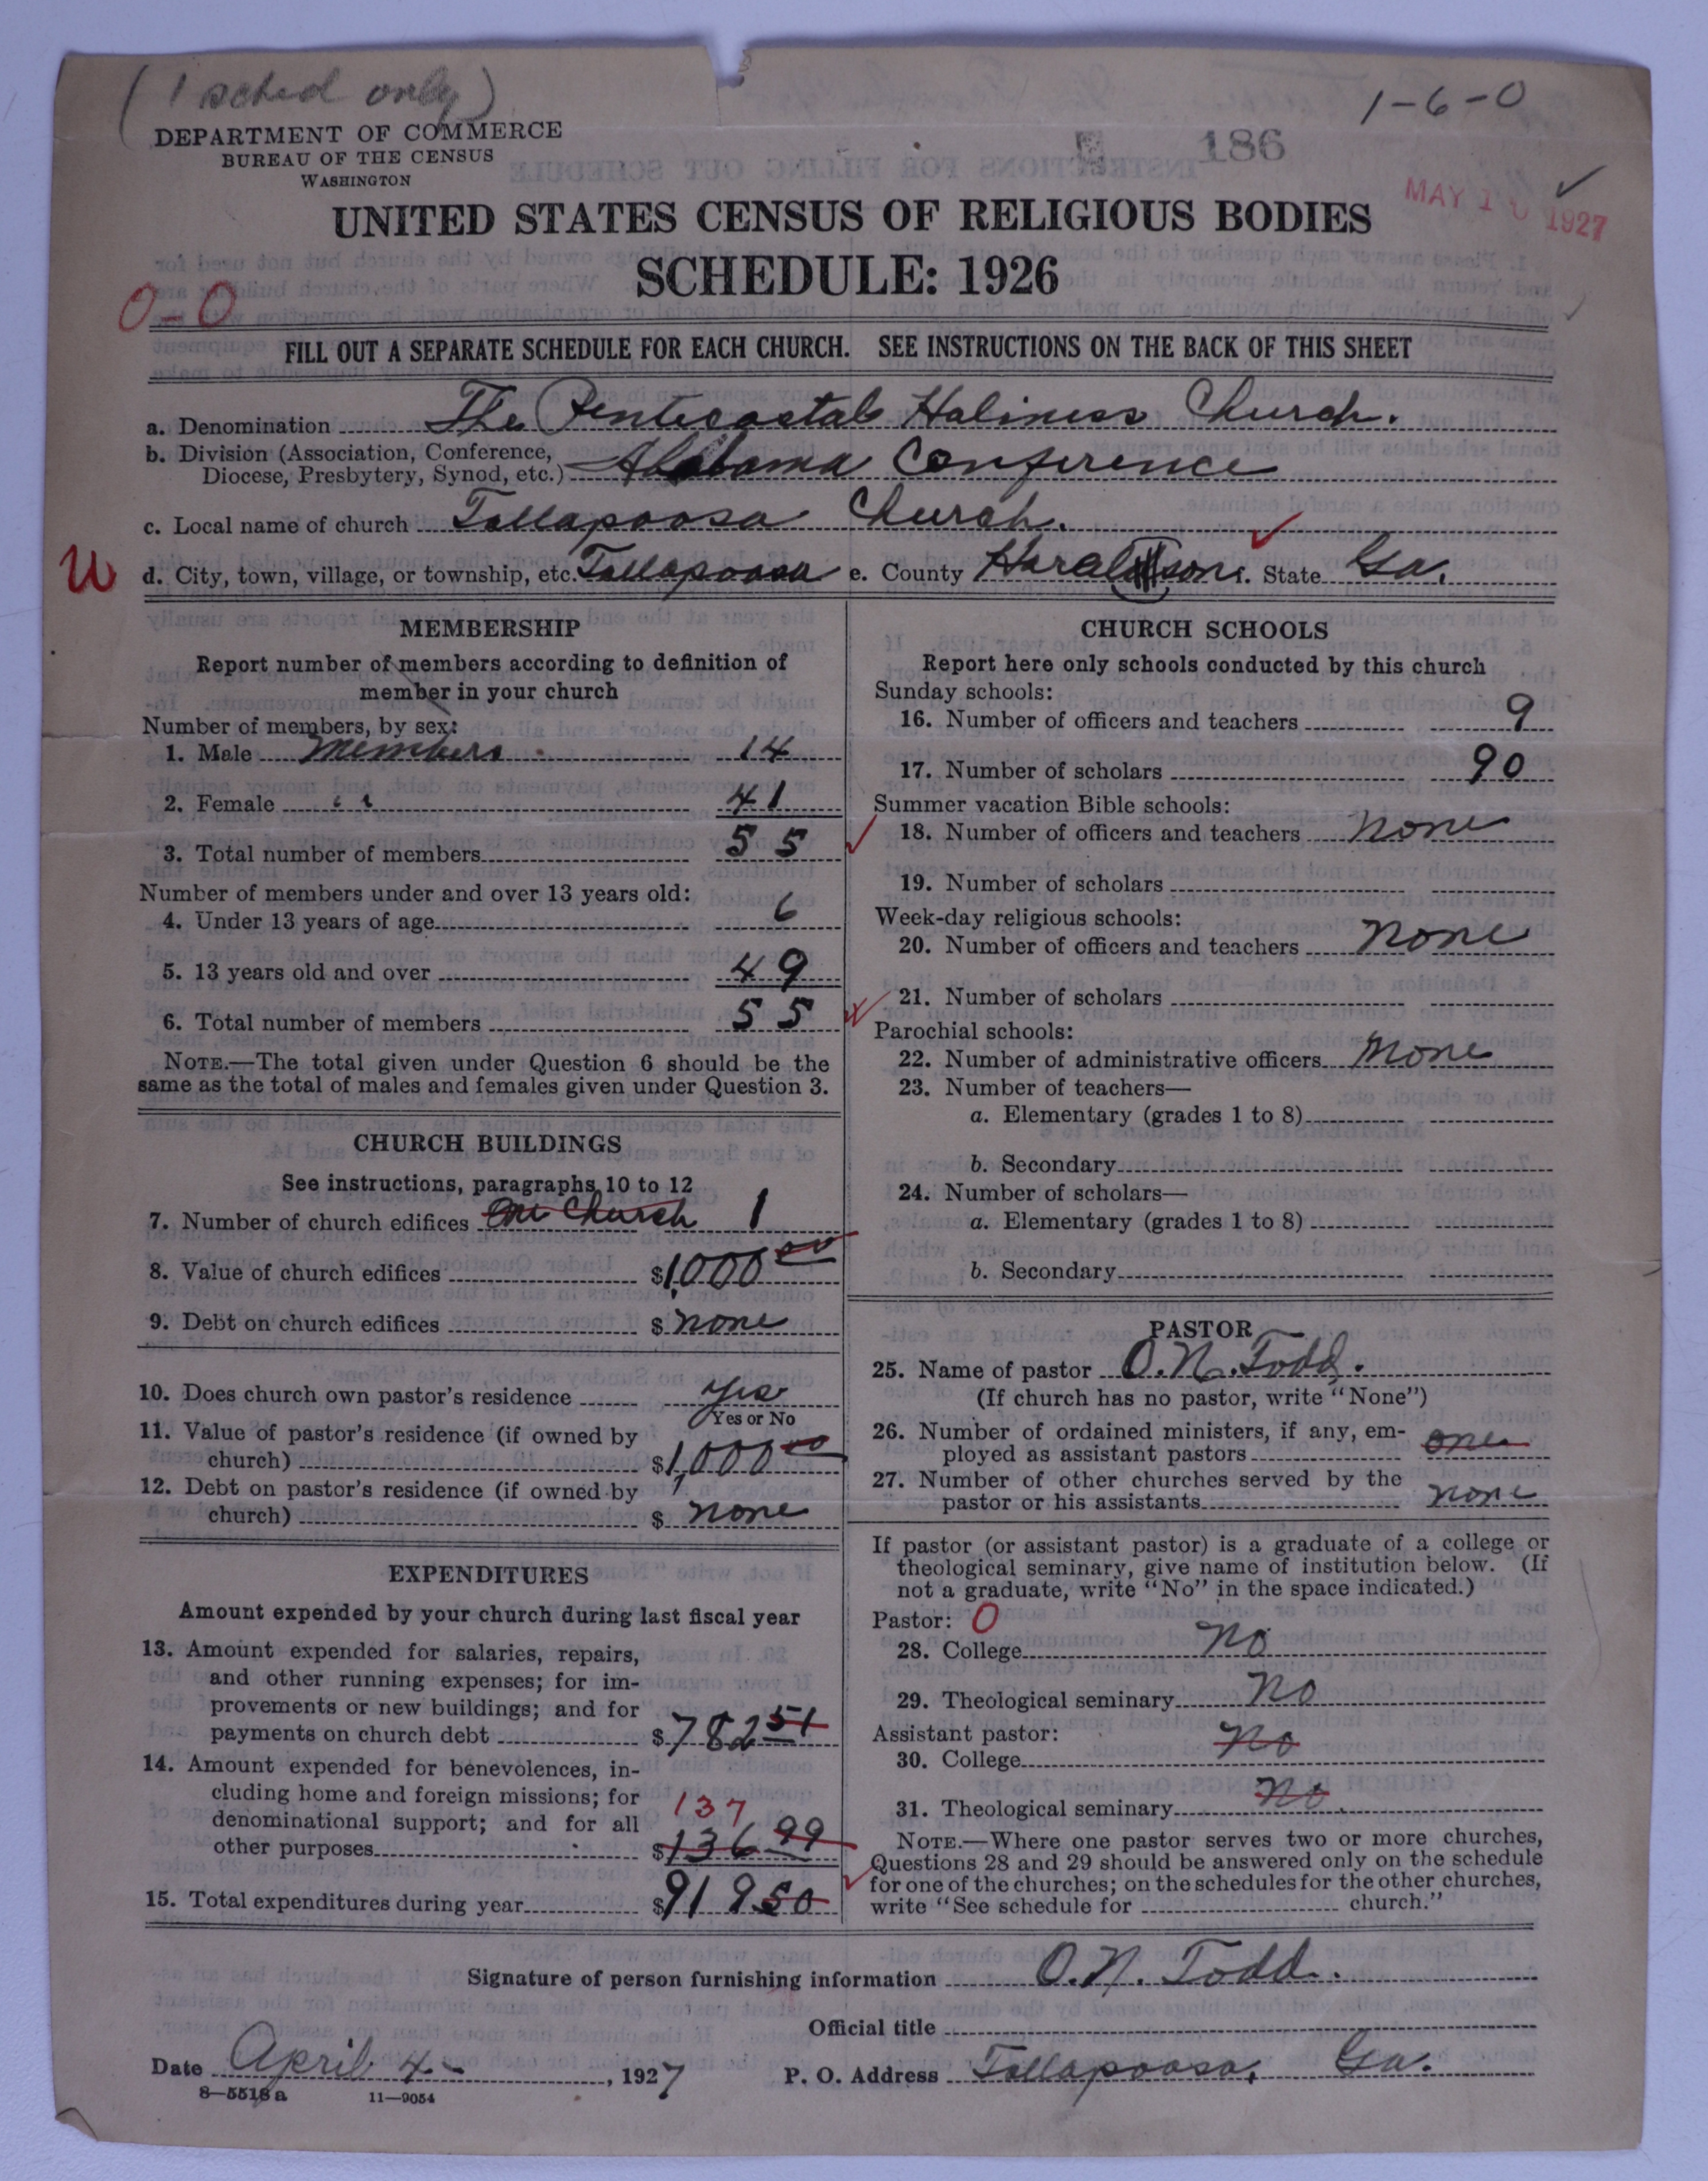 ( 1 sched only )
1-6-0
DEPARTMENT OF COMMERCE
BUREAU OF THE CENSUS
WASHINGTON
186
MAY 1 1927
UNITED STATES CENSUS OF RELIGIOUS BODIES
SCHEDULE: 1926
0-0
FILL OUT A SEPARATE SCHEDULE FOR EACH CHURCH. SEE INSTRUCTIONS ON THE BACK OF THIS SHEET
a. Denomination The Pentecostal Holiness Church.
b. Division (Association, Conference,
Diocese, Presbytery, Synod, etc.) Alabama Conference
c. Local name of church Tallapoosa Church.
d. City, town, village, or township, etc. Tallapoosa e. County Haralson f. State Ga.
MEMBERSHIP
Report number of members according to definition of
member in your church
Number of members, by sex:
1. Male members 14
2. Female " 41
3. Total number of members 55
Number of members under and over 13 years old:
4. Under 13 years of age 6
5. 13 years old and over 49
6. Total number of members 55
NOTE.—The total given under Question 6 should be the
same as the total of males and females given under Question 3.
CHURCH BUILDINGS
See instructions, paragraphs 10 to 12
7. Number of church edifices One Church 1
8. Value of church edifices $1,000 00
9. Debt on church edifices $ none
10. Does church own pastor's residence yes
Yes or No
11. Value of pastor's residence (if owned by
church) $1,000 00
12. Debt on pastor's residence (if owned by
church) $ none
EXPENDITURES
Amount expended by your church during last fiscal year
13. Amount expended for salaries, repairs,
and other running expenses; for im-
provements or new buildings; and for
payments on church debt $782 51
14. Amount expended for benevolences, in-
cluding home and foreign missions; for
denominational support; and for all 137
other purposes $136 99
15. Total expenditures during year $919 50
CHURCH SCHOOLS
Report here only schools conducted by this church
Sunday schools:
16. Number of officers and teachers 9
17. Number of scholars 90
Summer vacation Bible schools:
18. Number of officers and teachers none
19. Number of scholars
Week-day religious schools:
20. Number of officers and teachers none
21. Number of scholars
Parochial schools:
22. Number of administrative officers none
23. Number of teachers—
a. Elementary (grades 1 to 8)
b. Secondary
24. Number of scholars—
a. Elementary (grades 1 to 8)
b. Secondary
PASTOR
25. Name of pastor O. N. Todd.
(If church has no pastor, write "None")
26. Number of ordained ministers, if any, em-
ployed as assistant pastors one
27. Number of other churches served by the
pastor or his assistants none
If pastor (or assistant pastor) is a graduate of a college or
theological seminary, give name of institution below. (If
not a graduate, write "No" in the space indicated.)
Pastor: 0
28. College no
29. Theological seminary no
Assistant pastor:
30. College no
31. Theological seminary no
NOTE.—Where one pastor serves two or more churches,
Questions 28 and 29 should be answered only on the schedule
for one of the churches; on the schedules for the other churches,
write "See schedule for church."
Signature of person furnishing information O. N. Todd.
Official title
Date April 4 - , 1927 P. O. Address Tallapoosa, Ga.
8-5518 a 11-9054